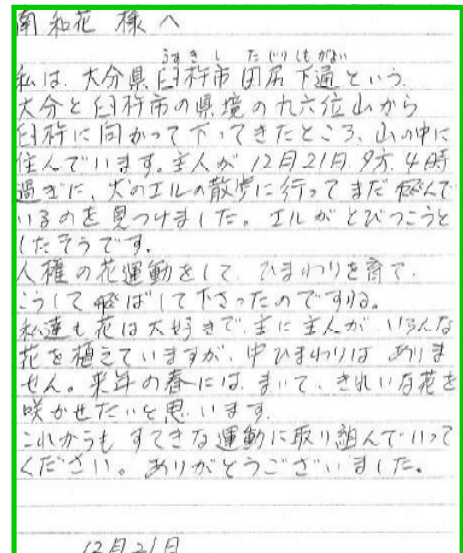 南 和花 様へ
うすきし たじりしもどおり
私は、大分県臼杵市田尻下通という、
大分と臼杵市の県境の九六位山から
臼杵に向かって下ってきたところ、山の中に
住んでいます。主人が12月21日、夕方、4時
過ぎに、犬のエルの散歩に行ってまだ飛んで
いるのを見つけました。エルがとびつこうと
したそうです。
人権の花運動をして、ひまわりを育て、
こうして飛ばして下さったのですね。
私達も花は大好きで、主に主人が、いろんな
花を植えていますが、中ひまわりは ありま
せん。来年の春には、まいて、きれいな花を
咲かせたいと思います。
これからも すてきな運動に取り組んでいって
ください。ありがとうございました。
12月21日